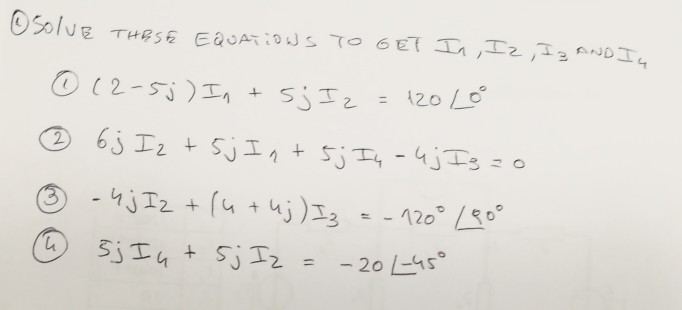 ① SOLVE THESE EQUATIONS TO GET I₁, I₂, I₃ AND I₄
① (2-5j)I₁ + 5jI₂ = 120∠0°
② 6jI₂ + 5jI₁ + 5jI₄ - 4jI₃ = 0
③ -4jI₂ + (4+4j)I₃ = -120°∠90°
④ 5jI₄ + 5jI₂ = -20∠-45°